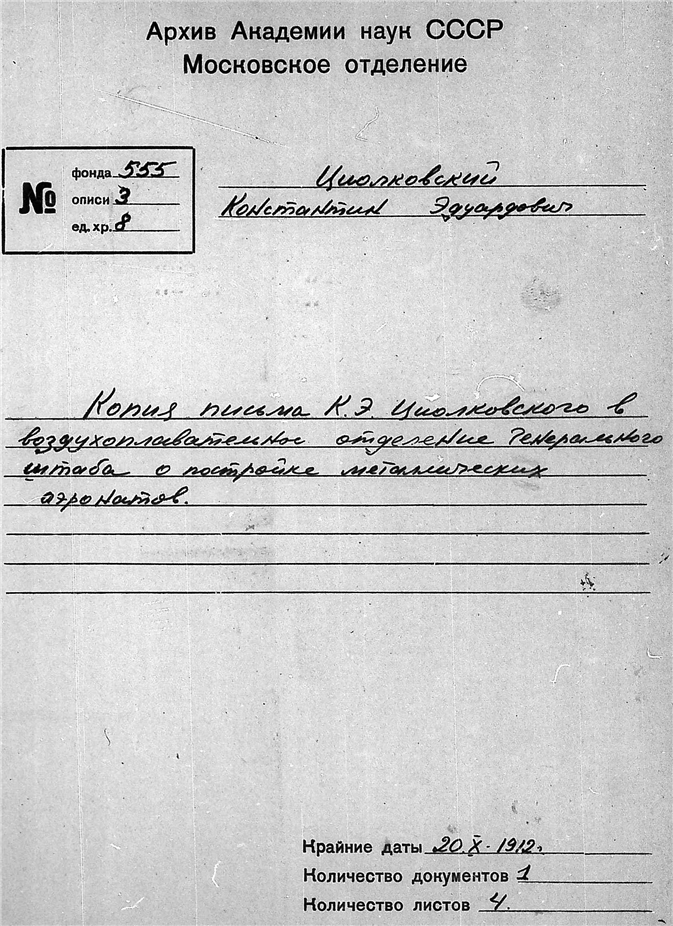 Архив Академии наук СССР
Московское отделение
№
фонда 555
описи 3
ед. хр. 8
Циолковский
Константин Эдуардович
Копия письма К.Э. Циолковского в
воздухоплавательное отделение Генерального
штаба о постройке металлических
аэронатов.
Крайние даты 20.X-1912г.
Количество документов 1
Количество листов 4.